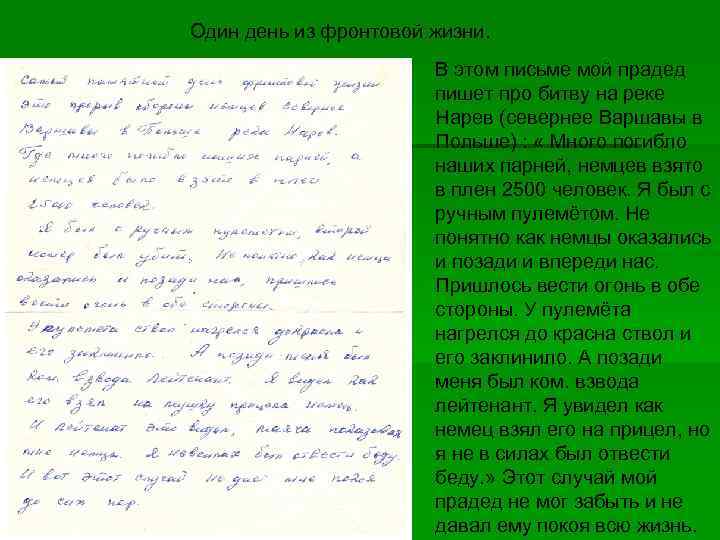 Один день из фронтовой жизни.
Самый памятной день фронтовой жизни
это прорыв обороны немцев Севернее
Варшавы в Польше река Наров.
Где много погибло наших парней, а
немцев было взято в плен
2500 человек.
Я был с ручным пулеметом, второй
номер был убит. Не понятно, как немцы
оказались и позади нас, пришлось
вести огонь в обе стороны.
У пулемета ствол нагрелся докрасна и
его заклинило. А позади меня был
ком. взвода лейтенант. Я видел как
его взял на мушку прицела немец.
И лейтенант это видел, показывая
мне немца. Я не в силах был отвести беду.
И вот этот случай не дает мне покоя
до сих пор.
В этом письме мой прадед
пишет про битву на реке
Нарев (севернее Варшавы в
Польше) : « Много погибло
наших парней, немцев взято
в плен 2500 человек. Я был с
ручным пулемётом. Не
понятно как немцы оказались
и позади и впереди нас.
Пришлось вести огонь в обе
стороны. У пулемёта
нагрелся до красна ствол и
его заклинило. А позади
меня был ком. взвода
лейтенант. Я увидел как
немец взял его на прицел, но
я не в силах был отвести
беду. » Этот случай мой
прадед не мог забыть и не
давал ему покоя всю жизнь.